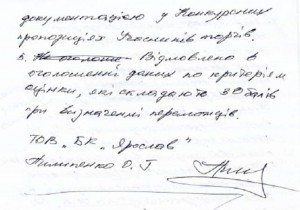 документацією у Конкурсних
пропозиціях Учасників торгів.
Відмовлено в
оголошенні даних по критеріям
оцінки, які складають 30 балів
при визначенні переможців.
ТОВ „БК „Ярослав"
Пилипенко О. Г